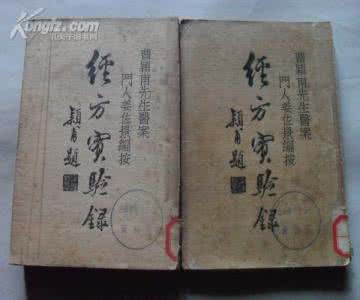 曹穎甫先生醫案
門人姜佐景編按
經方實驗錄
穎甫題
曹穎甫先生醫案
門人姜佐景編按
經方實驗錄
穎甫題